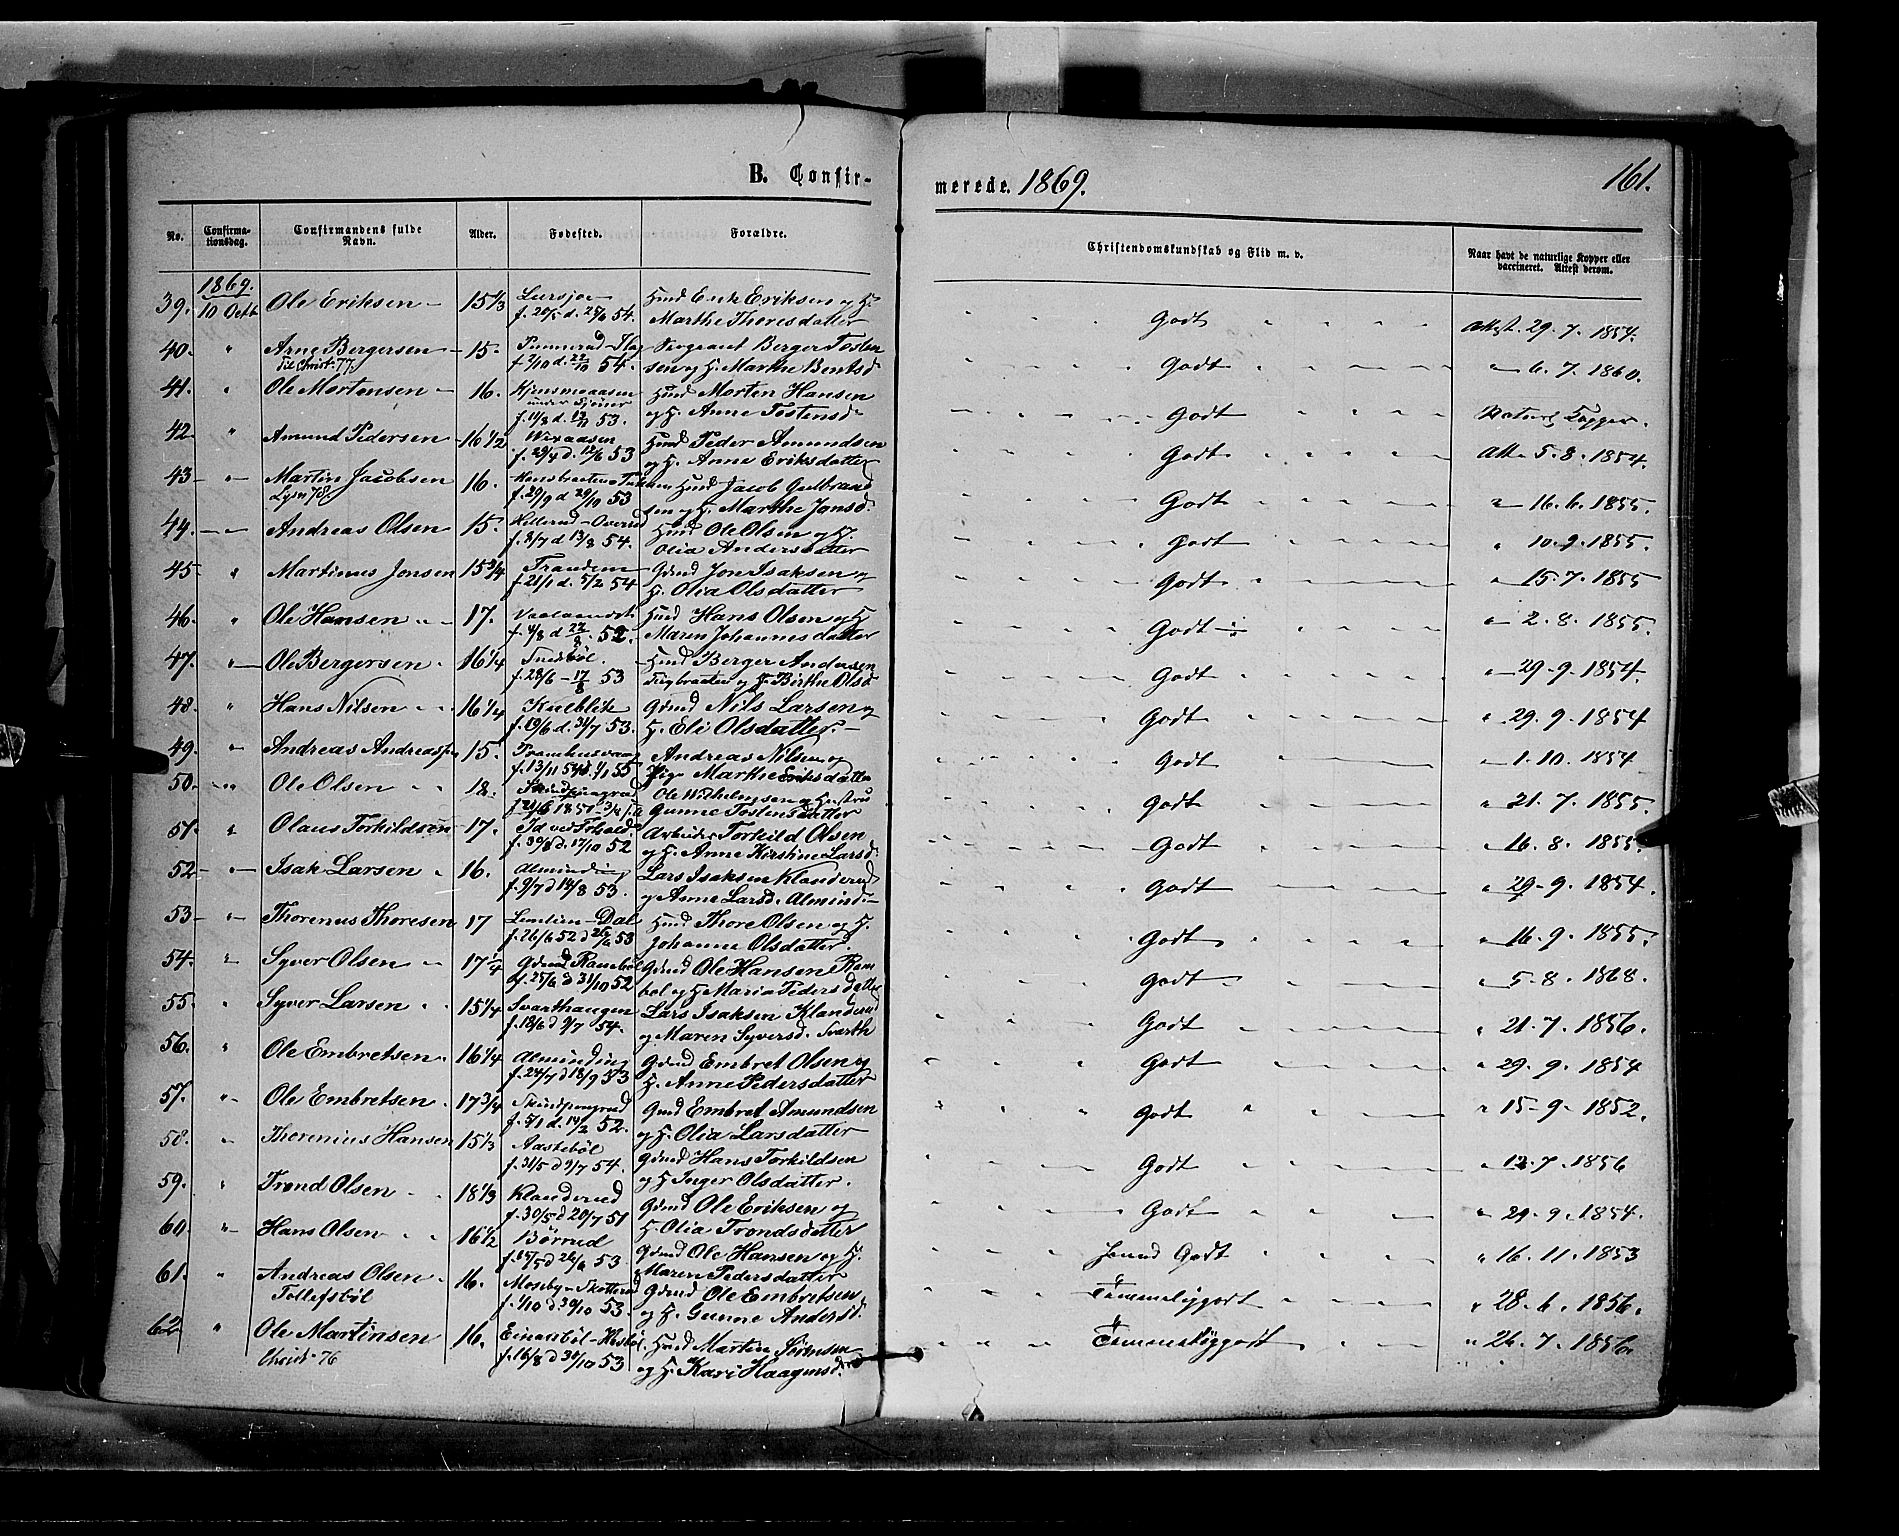 B. Confir-
merede. 1869.
161.
No. Confirma-tionsdag. Confirmandens fulde Navn. Alder. Fødested. Forældre. Christendomskundskab og Flid m. v. Naar havt de naturlige Kopper eller vaccineret. Attest derom.
1869.
39. 10 Octb Ole Eriksen 15 1/3 f. 20/5 d. 25/6 54. Huusmd Erik Eriksen og H. Marthe Thoresdatter Godt Attst. 29. 7. 1854.
40. " Arne Bergersen 15. f. 2/10 d. 22/10 54. Sergeant Berger Tostensen og H. Marthe Berntsd Godt " 6. 7. 1860.
Til Christ. 77.
41. " Ole Mortensen 16. f. 11/8 d. 13/11 53. Husmd Morten Hansen og H. Anne Tostensd Godt Naturl Kopper.
42. " Amund Pedersen 16 1/2 f. 29/4 d. 12/6 53 Husmd Peder Amundsen og H. Anne Eriksdatter Godt Att. 5. 8. 1854.
43 " Martin Jacobsen 16. f. 29/9 d 29/10 53 Husmd Jacob Gulbrandsen og H. Marthe Jonsd. Godt " 16. 6. 1855.
44. " Andreas Olsen 15. f. 8/7 d 13/8 54. Husmd Ole Olsen og H. Olia Andersdatter Godt " 10. 9. 1855.
45 " Martinus Jonsen 15 3/4 f. 21/1 d. 5/2 54 Gdmd Jon Isaksen og H. Olia Olsdatter Godt " 15. 7. 1855
46. " Ole Hansen 17. 52. Husmd Hans Olsen og H Maren Johannesdatter Godt " 2. 8. 1855.
47. " Ole Bergersen. 16 1/4 f. 28/6 - 17/8 53 Husmd Berger Andersen og H. Birthe Olsd Godt " 29. 9. 1854.
48. " Hans Nilsen 16 1/4 Kulblik f. 19/6 d. 31/7 53. Gdmd Nils Larsen og H. Eli Olsdatter. Godt " 29. 9. 1854
49. " Andreas Andreasen 15. f. 13/11 54 d. 1/1 55 Andreas Nilsen og Pige Marthe Eriksdatter Godt " 1. 10. 1854
50. " Ole Olsen 18. Ole Wilhelmsen og Hustru Gunne Tostensdatter Godt " 21. 7. 1855.
51. " Olaus Torkildsen 17. 52 Arbeider Torkild Olsen og H. Anne Kirstine Larsd. Godt " 16. 8. 1855.
52 " Isak Larsen 16. Alminding f. 9/7 d 14/8 53. Lars Isaksen Klanderud og Anne Larsd. Alminding Godt " 29. 9. 1854.
53 " Thorenus Thoresen 17 f. 26/6 52 d 26/6 53 Husmd Thore Olsen og H. Johanne Olsdatter. Godt " 16. 9. 1855.
54. " Syver Olsen 17 1/4 f. 25/6 d 31/10 52 Gdmd Ole Hansen og H Maria Pedersdatter Godt " 5. 8. 1868.
55. " Syver Larsen 15 1/4 Svarthaugen f. 18/6 d 9/7 54. Lars Isaksen Klanderud og Maren Syversd. Svarth Godt " 21. 7. 1856.
56. " Ole Embretsen. 16 1/4 Alminding f. 24/7 d 18/9 53 Gdmd Embret Olsen og H. Anne Pedersdatter Godt " 29. 9. 1854
57. " Ole Embretsen. 17 3/4 Skindpongrud f. 5/1 d. 14/2 52. Gmd Embret Amundsen og H. Olia Larsdatter Godt " 15. 9. 1852.
58. " Thorenius Hansen 15 1/3 Aastebøl f. 31/5 d 9/7 54. Gdmd Hans Torkildsen og H Inger Olsdatter. Godt " 12. 7. 1856
59. " Trond Olsen 18 1/3 Klanderud f. 30/5 d 20/7 51 Gdmd Ole Eriksen og H. Olia Trondsdatter Godt " 29. 9. 1854.
60. " Hans Olsen 16 1/2 Børrud 53 Gdmd Ole Hansen og H. Maren Pedersdatter Godt " 16. 11. 1853
61. " Andreas Olsen Tollefsbøl 16. Moseby Skotterud f. 1/10 d 30/10 53. Gdmd Ole Embretsen og H. Gunne Andersd. Temmeliggodt " 28. 6. 1856.
62 " Ole Martinsen 16. f. 16/8 d 30/10 53 Husmd Martin Sørensen og H. Kari Haagensd. Temmeliggodt " 26. 7. 1856.
Christ. 76